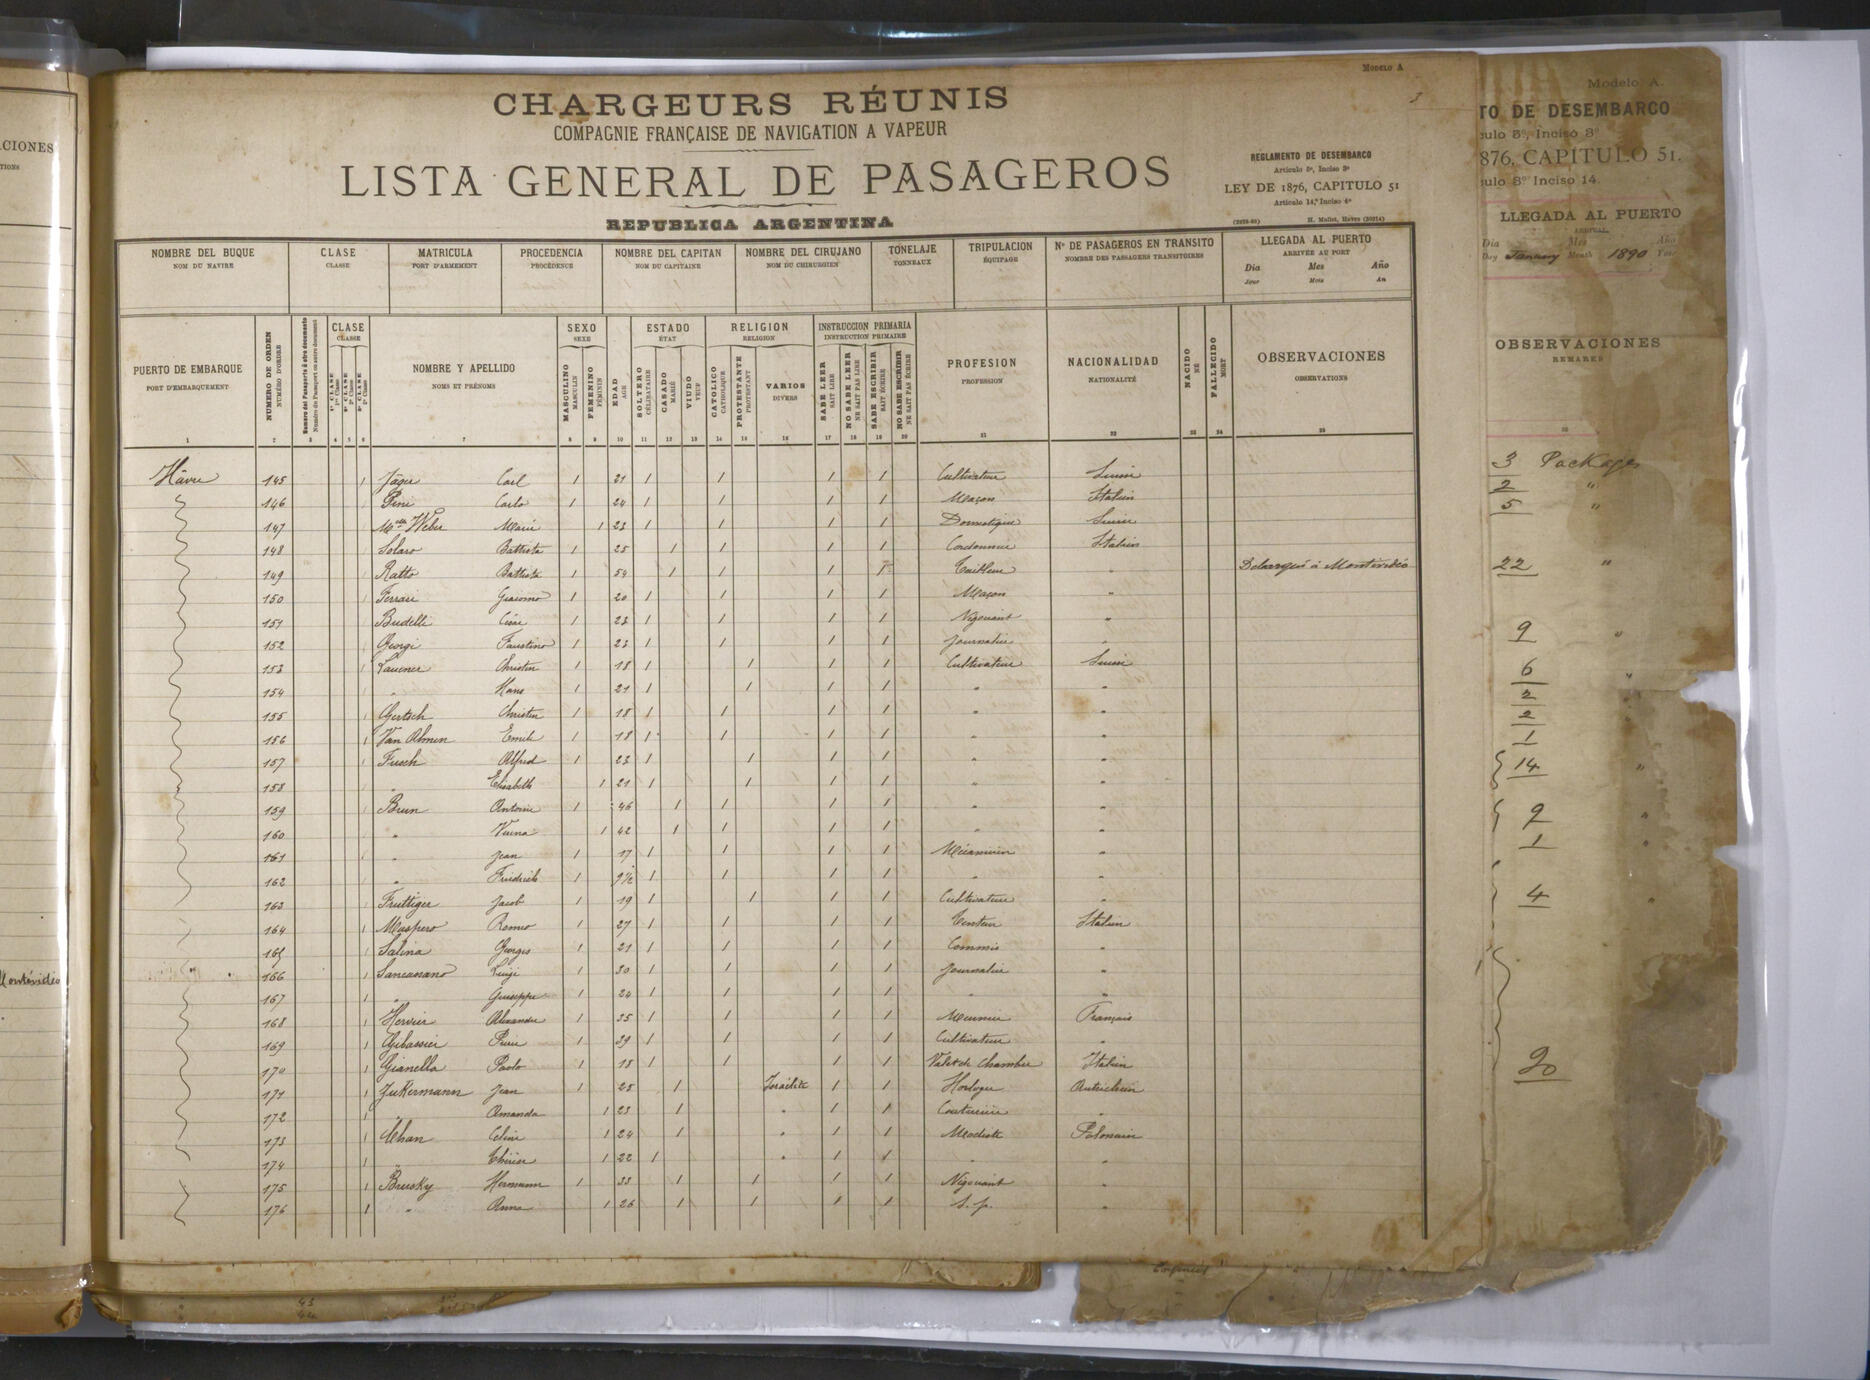 MODELO A
3
CHARGEURS RÉUNIS
COMPAGNIE FRANÇAISE DE NAVIGATION A VAPEUR
LISTA GENERAL DE PASAGEROS
REPUBLICA ARGENTINA
REGLAMENTO DE DESEMBARCO
Artículo 3º, Inciso 3º
LEY DE 1876, CAPITULO 51
Artículo 14,º Inciso 4º
NOMBRE DEL BUQUE CLASE MATRICULA PROCEDENCIA NOMBRE DEL CAPITAN NOMBRE DEL CIRUJANO TONELAJE TRIPULACION Nº DE PASAGEROS EN TRANSITO LLEGADA AL PUERTO
NOM DU NAVIRE CLASSE PORT D'ARMEMENT PROCÉDENCE NOM DU CAPITAINE NOM DU CHIRURGIEN TONNEAUX ÉQUIPAGE NOMBRE DES PASSAGERS TRANSITOIRES ARRIVÉE AU PORT
Dia Mes Año
Jour Mois An
PUERTO DE EMBARQUE NUMERO DE ORDEN CLASE NOMBRE Y APELLIDO SEXO EDAD ESTADO RELIGION INSTRUCCION PRIMARIA PROFESION NACIONALIDAD NACIDO FALLECIDO OBSERVACIONES
PORT D'EMBARQUEMENT NUMÉRO D'ORDRE CLASSE NOMS ET PRÉNOMS SEXE AGE ÉTAT RELIGION INSTRUCTION PRIMAIRE PROFESSION NATIONALITÉ NÉ MORT OBSERVATIONS
MASCULINO FEMENINO SOLTERO CASADO VIUDO CATOLICO PROTESTANTE VARIOS SABE LEER NO SABE LEER SABE ESCRIBIR NO SABE ESCRIBIR
MASCULIN FÉMININ CÉLIBATAIRE MARIÉ VEUF CATHOLIQUE PROTESTANT DIVERS SAIT LIRE NE SAIT PAS LIRE SAIT ÉCRIRE NE SAIT PAS ÉCRIRE
1 2 3 4 5 6 7 8 9 10 11 12 13 14 15 16 17 18 19 20 21 22 23 24 25
Hâvre 145 1 Jäger Carl 1 21 1 1 1 1 Cultivateur Suisse
146 Pini Carlo 1 24 1 1 1 1 Maçon Italien
147 Melle Weber Marie 1 23 1 1 1 1 Domestique Suisse
148 Solaro Battista 1 25 1 1 1 1 Cordonnier Italien
149 Ratto Battista 1 54 1 1 1 1 Tailleur " Débarqué à Montévidéo
150 Ferrari Giacomo 1 20 1 1 1 1 Maçon "
151 Budelli César 1 23 1 1 1 1 Négociant "
152 Georgi Faustino 1 23 1 1 1 1 Journalier "
153 Lauener Christen 1 18 1 1 1 1 Cultivateur Suisse
154 " Hans 1 21 1 1 1 1 " "
155 Gertsch Christen 1 18 1 1 1 1 " "
156 1 Van Almen Emile 1 18 1 1 1 1 " "
157 Fusch Alfred 1 23 1 1 1 1 " "
158 " Elisabeth 1 21 1 1 1 1 " "
159 Brun Antoine 1 46 1 1 1 1 "
160 " Vicina 1 42 1 1 1 1 " "
161 " Jean 1 17 1 1 1 1 Mécanicien "
162 " Friedrich 1 9½ 1 1 1 1 " "
163 Fruttiger Jacob 1 19 1 1 1 1 Cultivateur "
164 Maspero Romeo 1 27 1 1 1 1 Italien
165 Salina Georges 1 21 1 1 1 1 Commis "
166 Sancassano Luigi 1 30 1 1 1 1 Journalier "
167 " Giuseppe 1 24 1 1 1 1 " "
168 Hervier Alexandre 1 35 1 1 1 1 Meunier Français
169 Gibassier Pierre 1 39 1 1 1 1 Cultivateur "
170 Gianella Paolo 1 18 1 1 1 1 Valet de Chambre Italien
171 Zukermann Jean 1 25 1 Israélite 1 1 Horloger Autrichien
172 " Amanda 1 23 1 " 1 1 Couturière "
173 Chan Celine 1 24 1 " 1 1 Modiste Polonais
174 " Thérèse 1 22 1 " 1 1 " "
175 Brusky Hermann 1 33 1 1 1 1 Négociant "
176 " Anna 1 26 1 1 1 1 S. p. "
CIONES
TIONS
Montévidéo
Modelo A.
TO DE DESEMBARCO
culo 3º, Inciso 3º
876, CAPITULO 51.
culo 3º Inciso 14.
LLEGADA AL PUERTO
ARRIVAL
Dia Mes Año
Day January Month 1890 Year
OBSERVACIONES
REMARKS
3 Packages
2 "
5 "
22 "
9 "
6 "
2 "
2 "
1
14 "
9 "
1 "
4 "
20
43
44